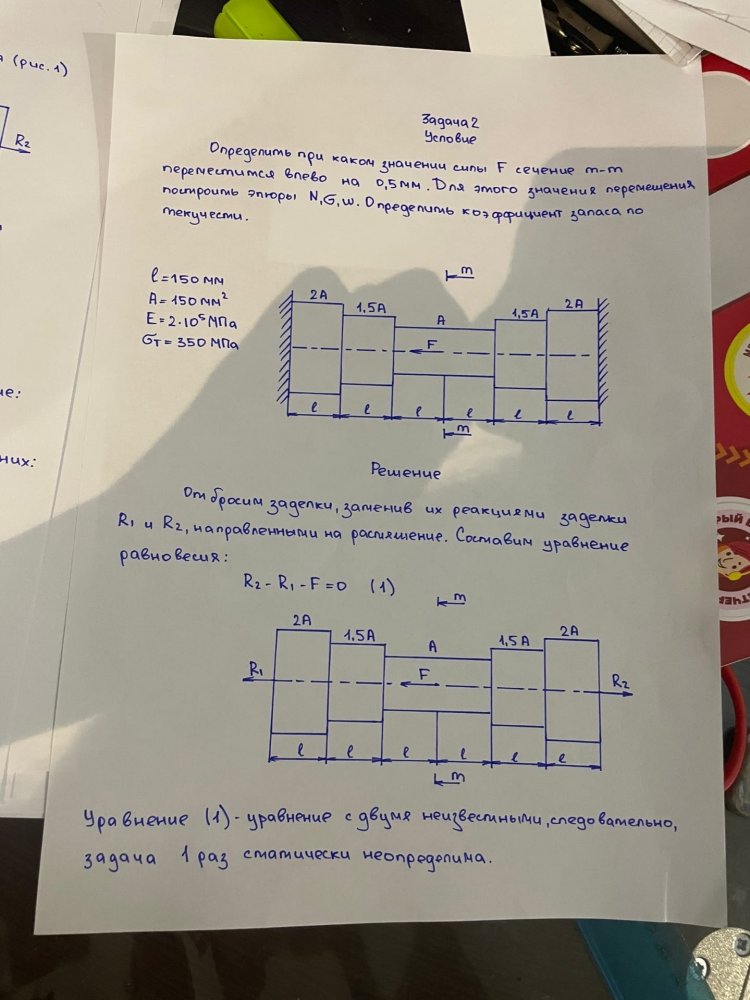 (рис.1)
R₂
Задача 2
Условие
Определить при каком значении силы F сечение m-m
переместится влево на 0,5мм. Для этого значения перемещения
построить эпюры N,σ,w. Определить коэффициент запаса по
текучести.
l=150 мм
A=150 мм²
E=2·10⁵ МПа
σт=350 МПа
m
2A 1,5A A 1,5A 2A
F
l l l l l l
m
Решение
Отбросим заделки, заменив их реакциями заделки
R₁ и R₂, направленными на растяжение. Составим уравнение
равновесия:
R₂ - R₁ - F = 0 (1)
m
2A 1,5A A 1,5A 2A
R₁ F R₂
l l l l l l
m
Уравнение (1)- уравнение с двумя неизвестными, следовательно,
задача 1 раз статически неопределима.